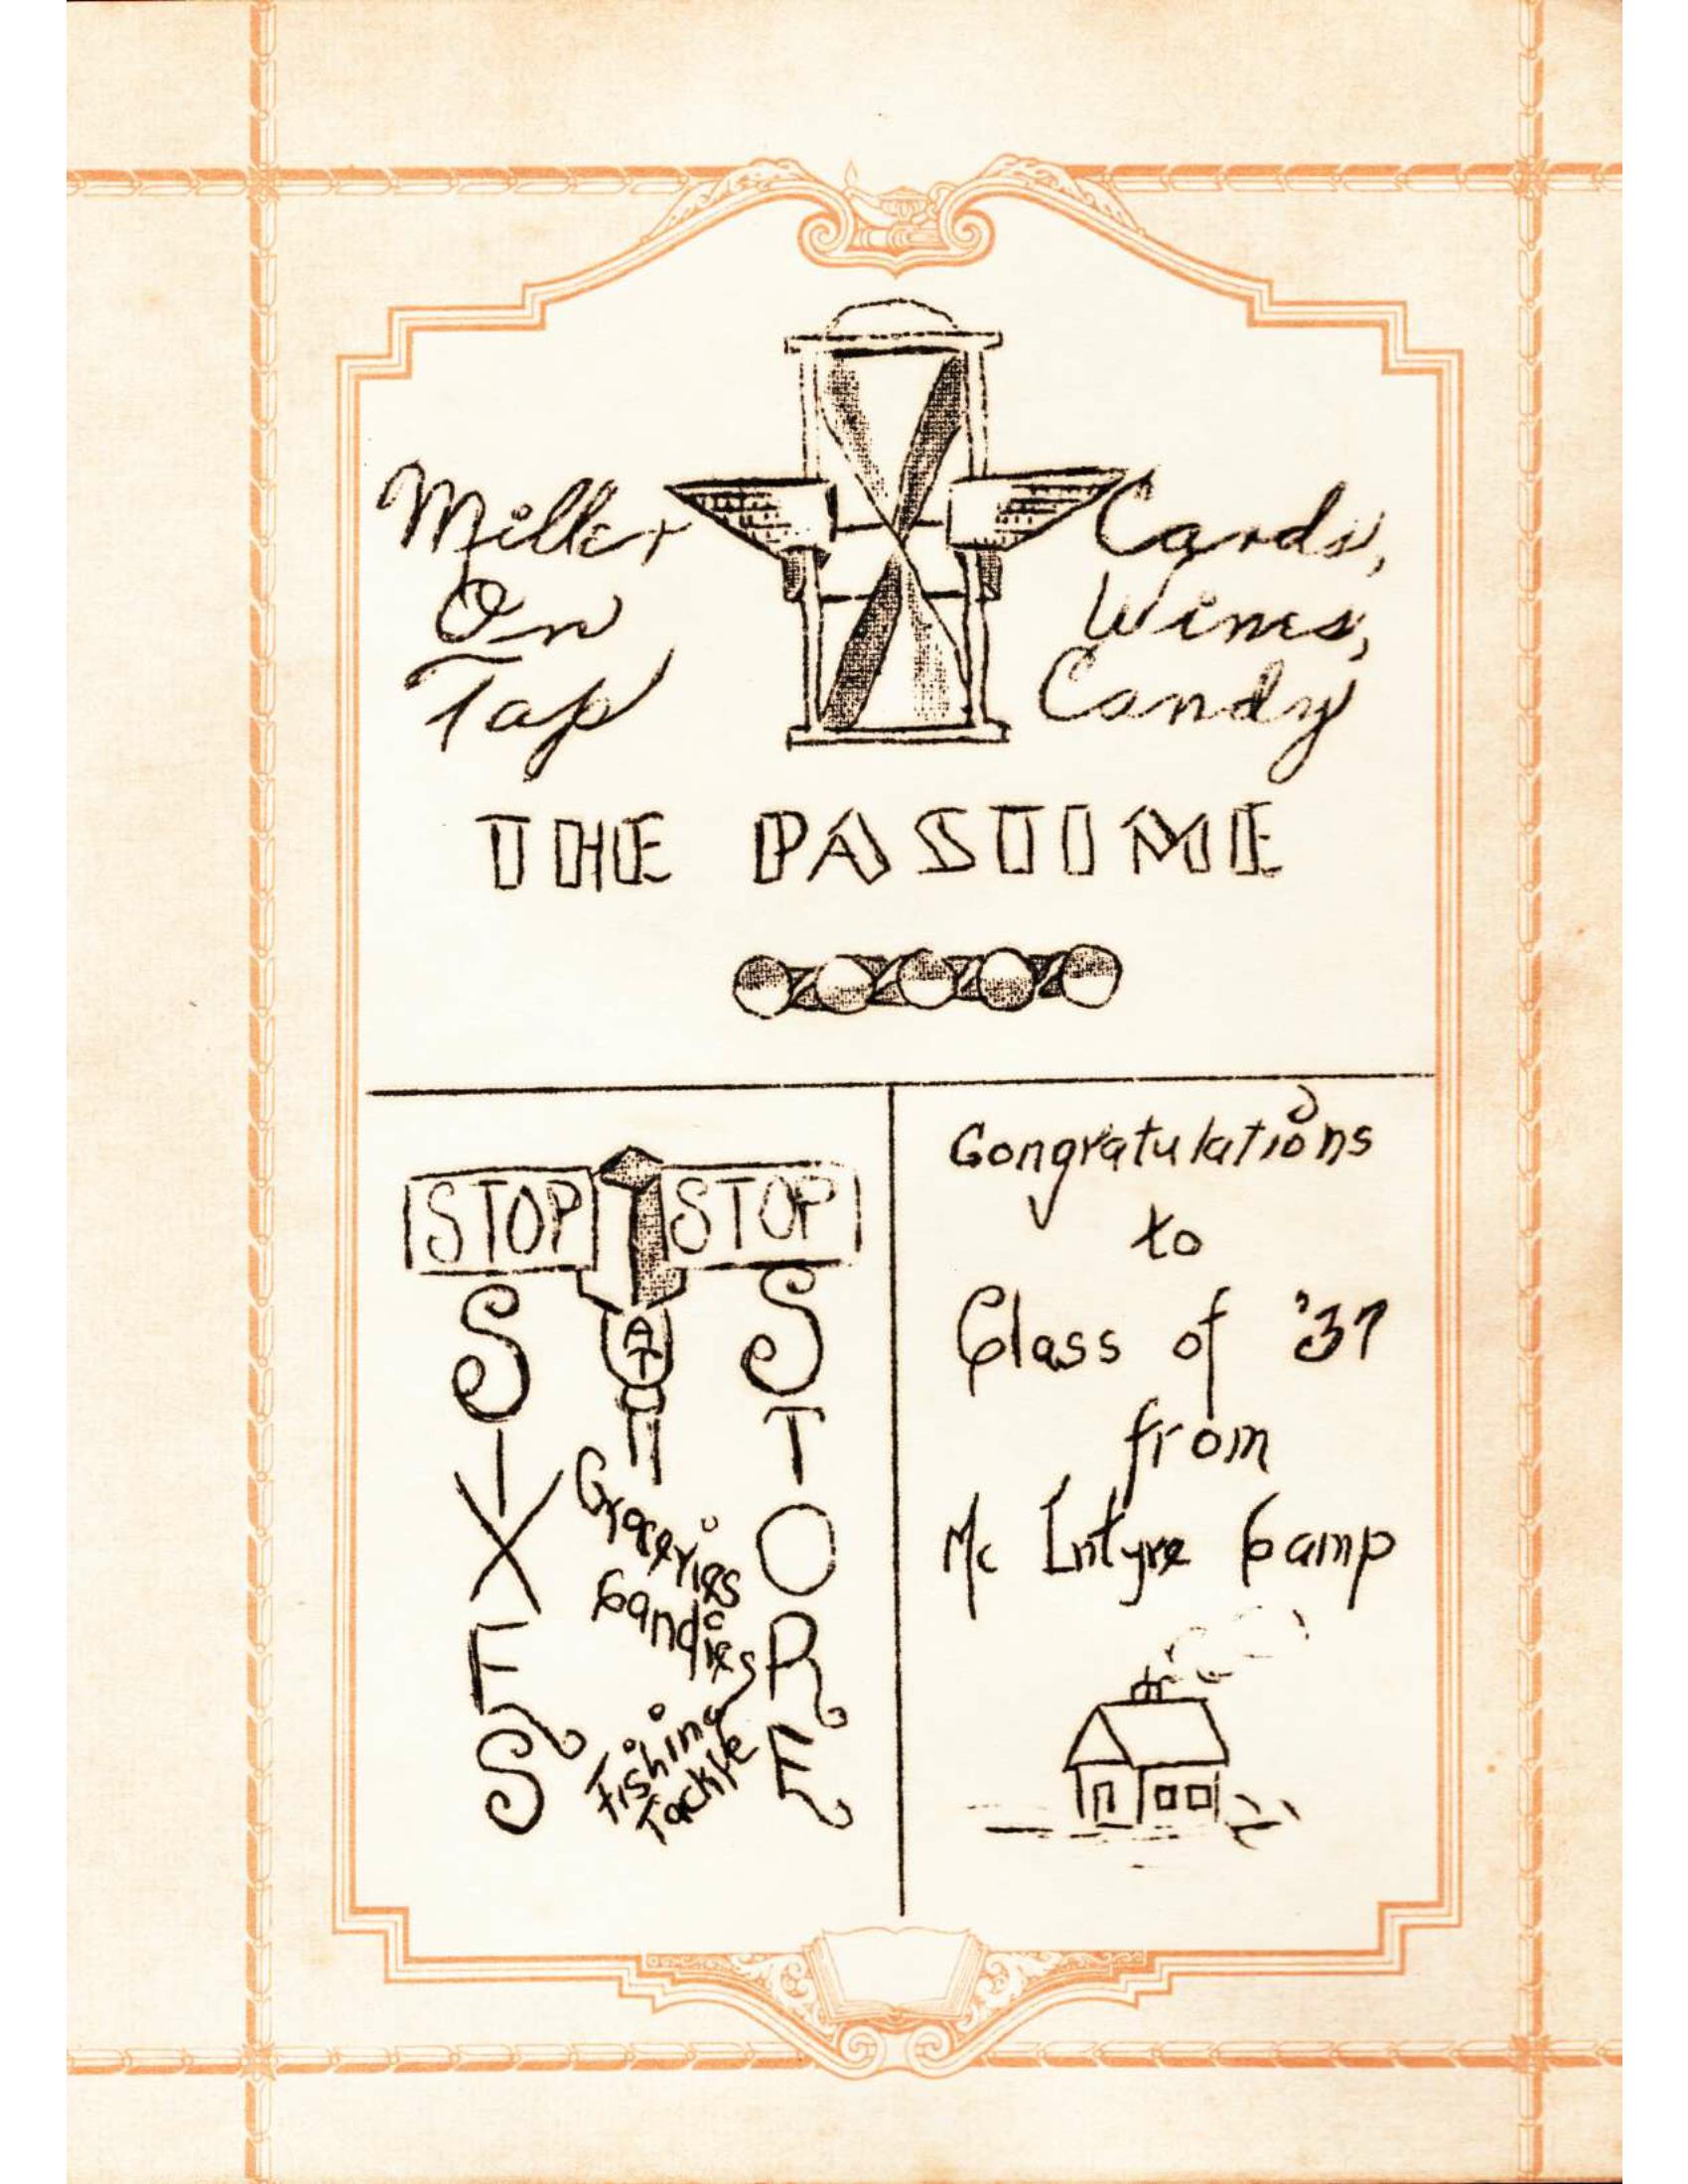 Miller
On
Tap
Cards,
Wines,
Candy
THE PASTIME
STOP STOP
AT
SIXES
STORE
Groceries
Candies
Fishing
Tackle
Congratulations
to
Class of '37
from
Mc Intyre Camp